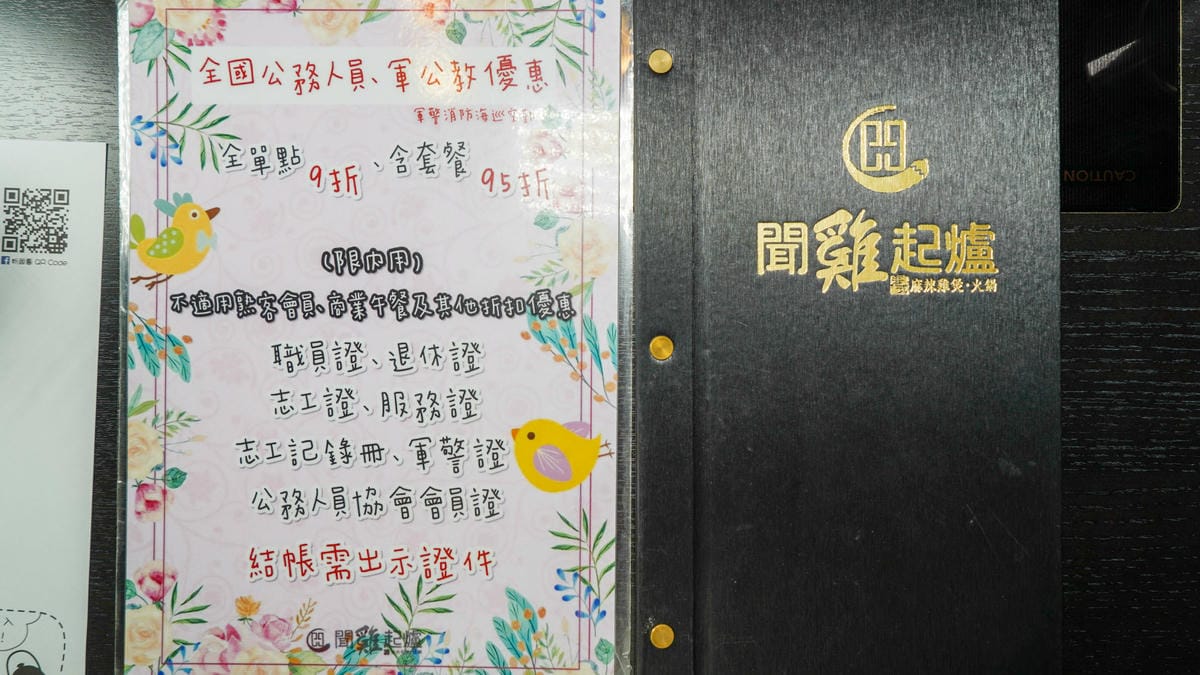 全國公務人員、軍公教優惠
軍警消防海巡
全單點9折、含套餐95折
(限內用)
不適用熟客會員、商業午餐及其他折扣優惠
職員證、退休證
志工證、服務證
志工記錄冊、軍警證
公務人員協會會員證
結帳需出示證件
聞雞起爐
聞雞起爐
麻辣雞煲·火鍋
CAUTION
QR Code
入